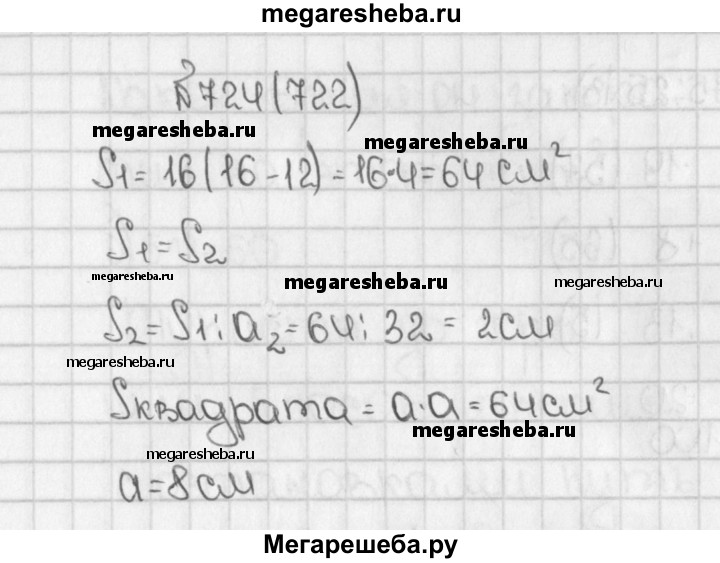 megaresheba.ru
№724(722)
megaresheba.ru
megaresheba.ru
S1=16(16-12)=16·4=64 см²
S1=S2
megaresheba.ru
megaresheba.ru
megaresheba.ru
S2=S1:a2=64:32=2см
megaresheba.ru
Sквадрата=a·a=64см²
megaresheba.ru
megaresheba.ru
a=8см
Мегарешеба.ру